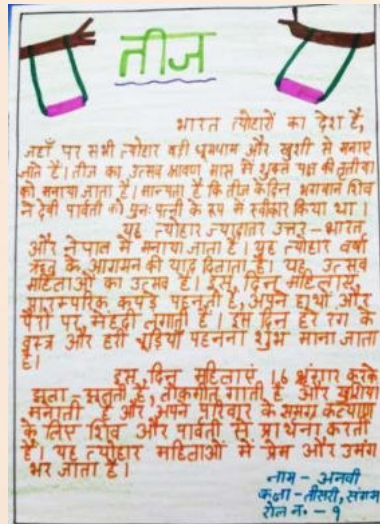 तीज
भारत त्योहारों का देश है,
जहाँ पर सभी त्योहार बड़ी धूमधाम और खुशी से मनाए
जाते हैं। तीज का उत्सव श्रावण मास में शुक्ल पक्ष की तृतीया
को मनाया जाता है। मान्यता है कि तीज के दिन भगवान शिव
ने देवी पार्वती को पुनः पत्नी के रूप में स्वीकार किया था।
यह त्योहार ज्यादातर उत्तर - भारत
और नेपाल में मनाया जाता है। यह त्योहार वर्षा
ऋतु के आगमन की याद दिलाता है। यह उत्सव
महिलाओं का उत्सव है। इस दिन महिलाएं
पारम्परिक कपड़े पहनती है, अपने हाथों और
पैरों पर मेहंदी लगाती हैं। इस दिन हरे रंग के
वस्त्र और हरी चूड़ियां पहनना शुभ माना जाता
है।
इस दिन महिलाएं 16 श्रृंगार करके
झूला - झूलती है, लोकगीत गाती हैं और खुशियां
मनाती हैं और अपने परिवार के समग्र कल्याण
के लिए शिव और पार्वती से प्रार्थना करती
हैं। यह त्योहार महिलाओं में प्रेम और उमंग
भर जाता है।
नाम - अनवी
कक्षा - तीसरी, संगम
रोल न. - १